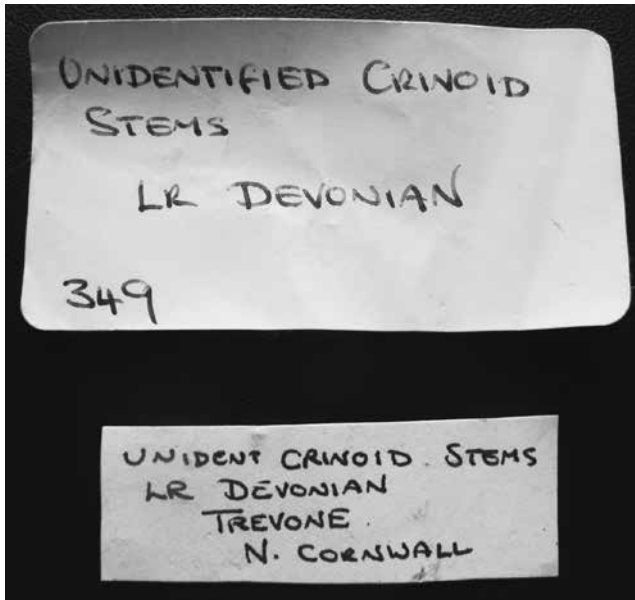 UNIDENTIFIED CRINOID
STEMS
LR DEVONIAN
349
UNIDENT CRINOID STEMS
LR DEVONIAN
TREVONE.
N. CORNWALL